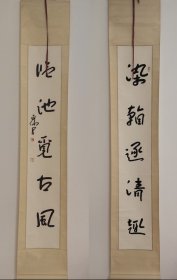 染翰逐清趣
临池觅古风